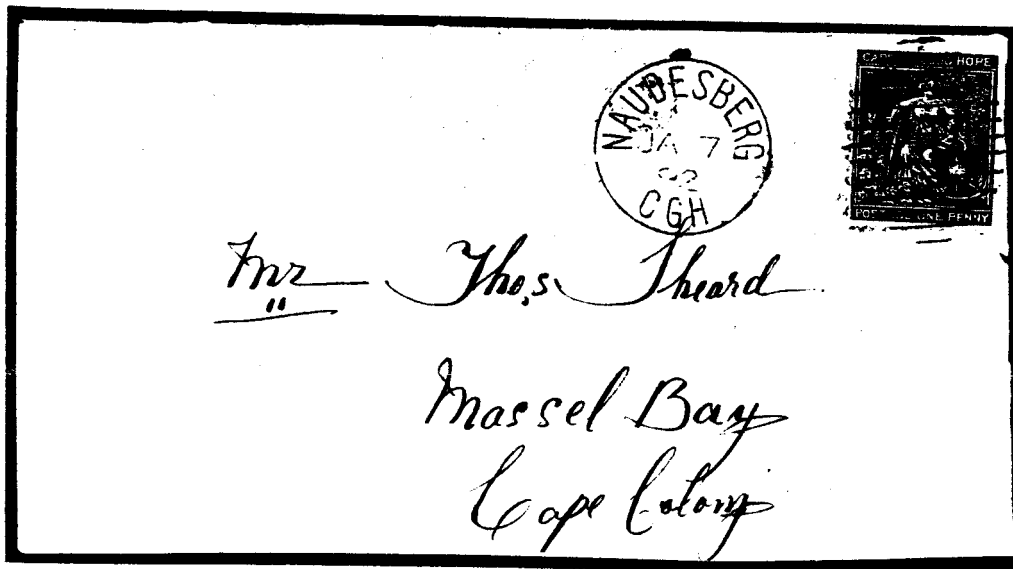 NAUDESBERG
JA 7
92
CGH
HOPE
ONE PENNY
Mr Tho,s Sheard
Massel Bay
Cape Colony